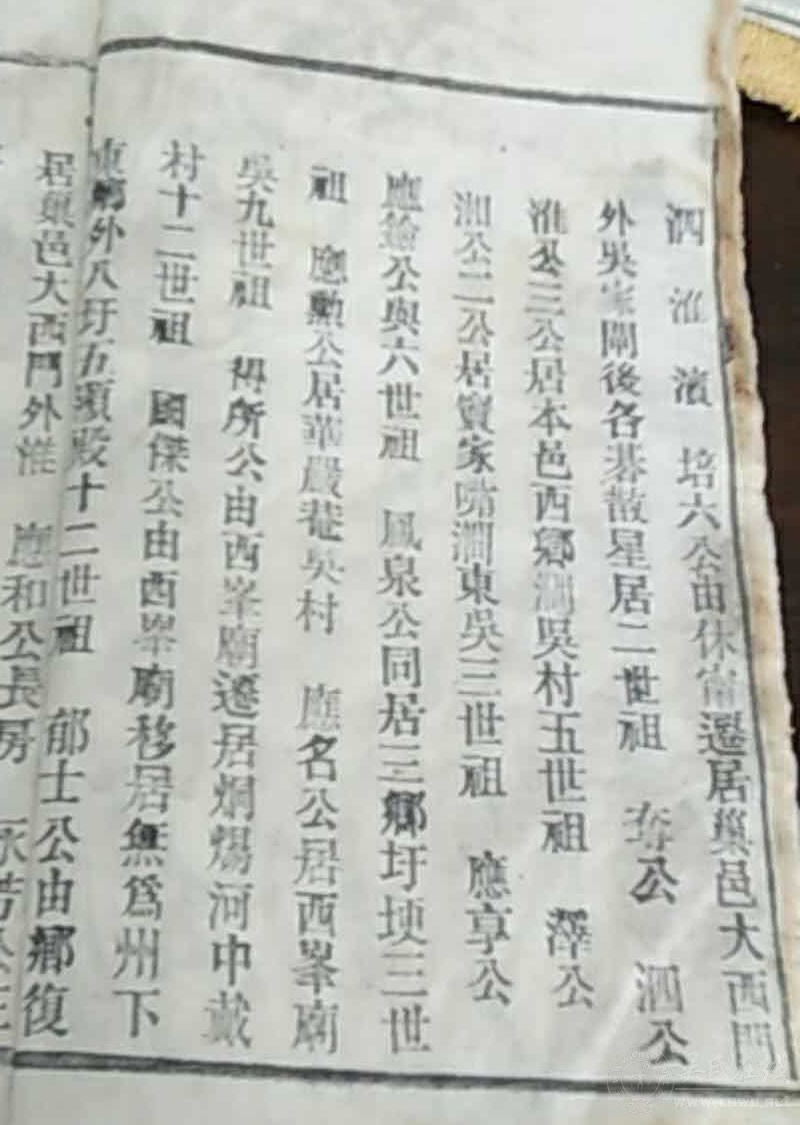 泗淮濱　培六公由休甯遷居巢邑大西門
外吳家閘後各碁散星居二世祖　奪公　泗公
淮公三公居本邑西鄉澗吳村五世祖　澤公
湘公二公居竇家嘴澗東吳三世祖　應享公
應鑰公與六世祖　鳳泉公同居三鄉圩埂三世
祖　應勳公居華嚴菴吳村　應名公居西峯廟
吳九世祖　得所公由西峯廟遷居炯煬河中戴
村十二世祖　國傑公由西峯廟移居無爲州下
東鄉外八圩五須段十二世祖　郁士公由鄉復
居巢邑大西門外淮　應和公長房